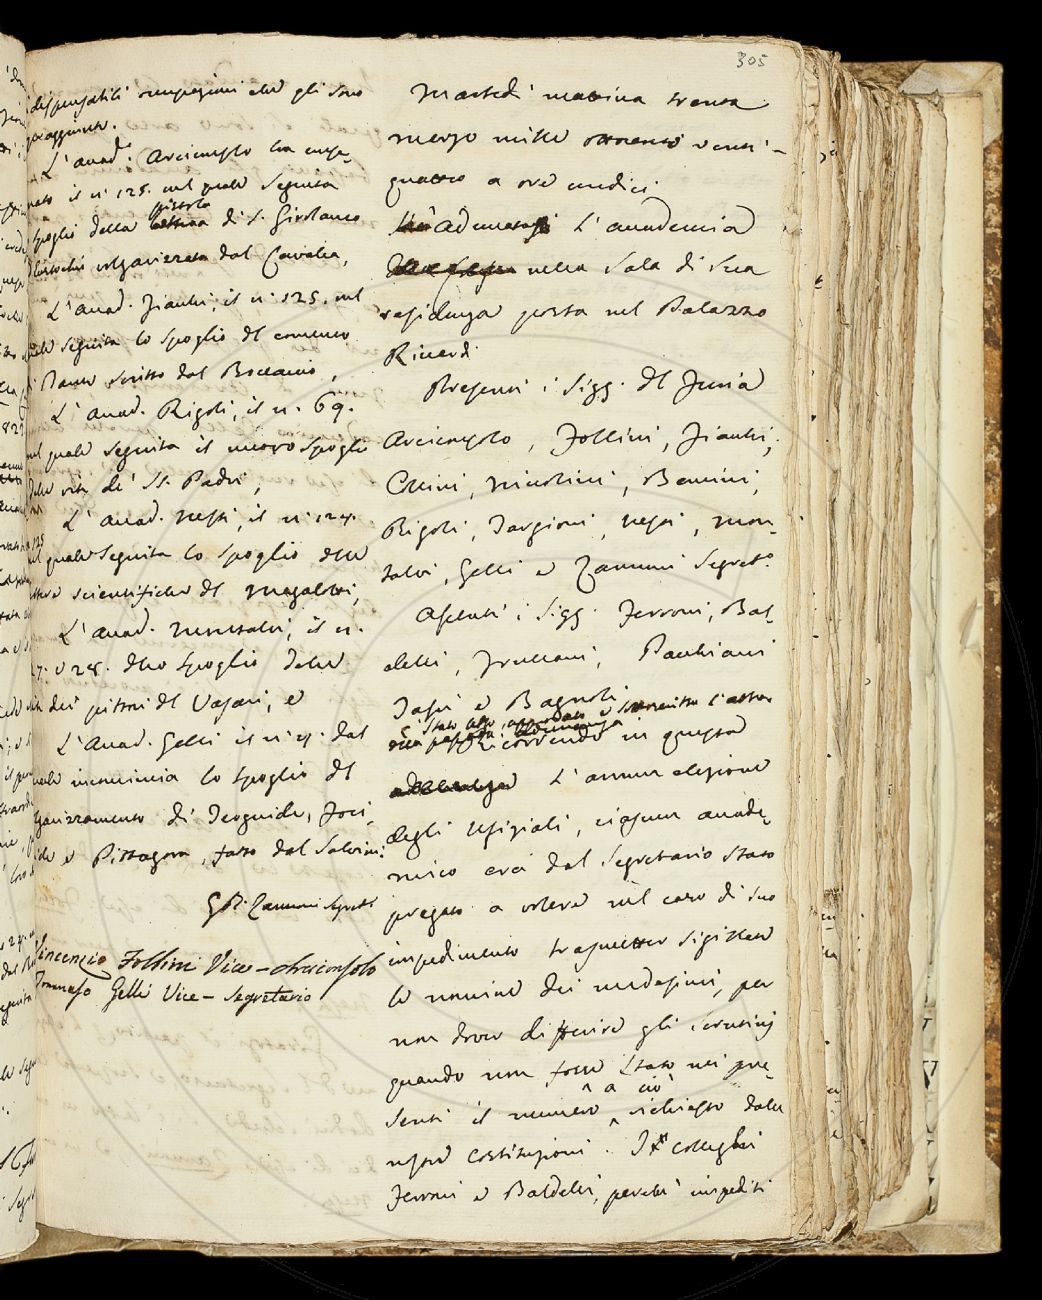 305
dispensabili occupazioni che gli sono
sopraggiunte.
L'Accad.º Arciconsolo ha conse-
gnato il n. 125. nel quale seguita
spoglio della pistola di S. Girolamo
Eustochio volgarizzata dal Cavalca,
L'Accad. Fiacchi, il n. 125. nel
quale seguita lo spoglio del comento
di Dante scritto dal Boccaccio,
L'Accad. Rigoli, il n. 69.
nel quale seguita il nuovo spoglio
delle vite de' SS. Padri,
L'Accad. Nesti, il n. 124.
nel quale seguita lo spoglio delle
lettere scientifiche del Magalotti,
L'Accad. Montalvi, il n.
27. e 28. dello spoglio delle
vite dei pittori del Vasari, e
L'Accad. Gelli il n. 4. dal
quale incomincia lo spoglio del
volgarizzamento di Teognide, Foci-
lide e Pittagora, fatto dal Salvini.
G. B. Zannoni Segret.
Vincenzio Follini Vice-Arciconsolo
Tommaso Gelli Vice-Segretario
Martedì mattina trenta
marzo mille ottocento venti-
quattro a ore undici
Adunatasi l'accademia
nella Sala di sua
residenza posta nel Palazzo
Riccardi
Presenti i Sigg. Del Furia
Arciconsolo, Follini, Fiacchi,
Collini, Niccolini, Bencini,
Rigoli, Targioni, Nesti, Mon-
talvi, Gelli e Zannoni Segret.º
Assenti i Sigg. Ferroni, Bal-
delli, Frullani, Pacchiani
Tassi e Bagnoli
è stato letto, approvato e sottoscritto l'atto
della passata adunanza
Ricorrendo in questa
l'annua elezione
degli Ufiziali, ciascun accade-
mico era dal Segretario stato
pregato a volere nel caso di suo
impedimento trasmetter sigillato
le nomine dei medesimi, per
non dover differire gli scrutinj
quando non fosse stato nei pre-
senti il numero a ciò richiesto dalle
nostre costituzioni. I colleghi
Ferroni e Baldelli, perchè impediti